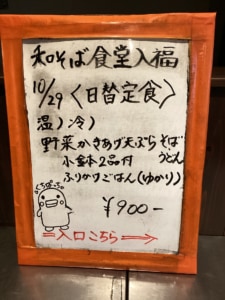 和そば食堂入福
10/29 〈日替定食〉
温)冷)
野菜かきあげ天ぷらそば
うどん
小鉢2品付
ふりかけごはん(ゆかり)
¥900-
入口こちら